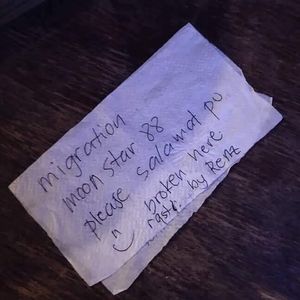 migration
moon star 88
please salamat po
^
broken here
rastr. by Renz